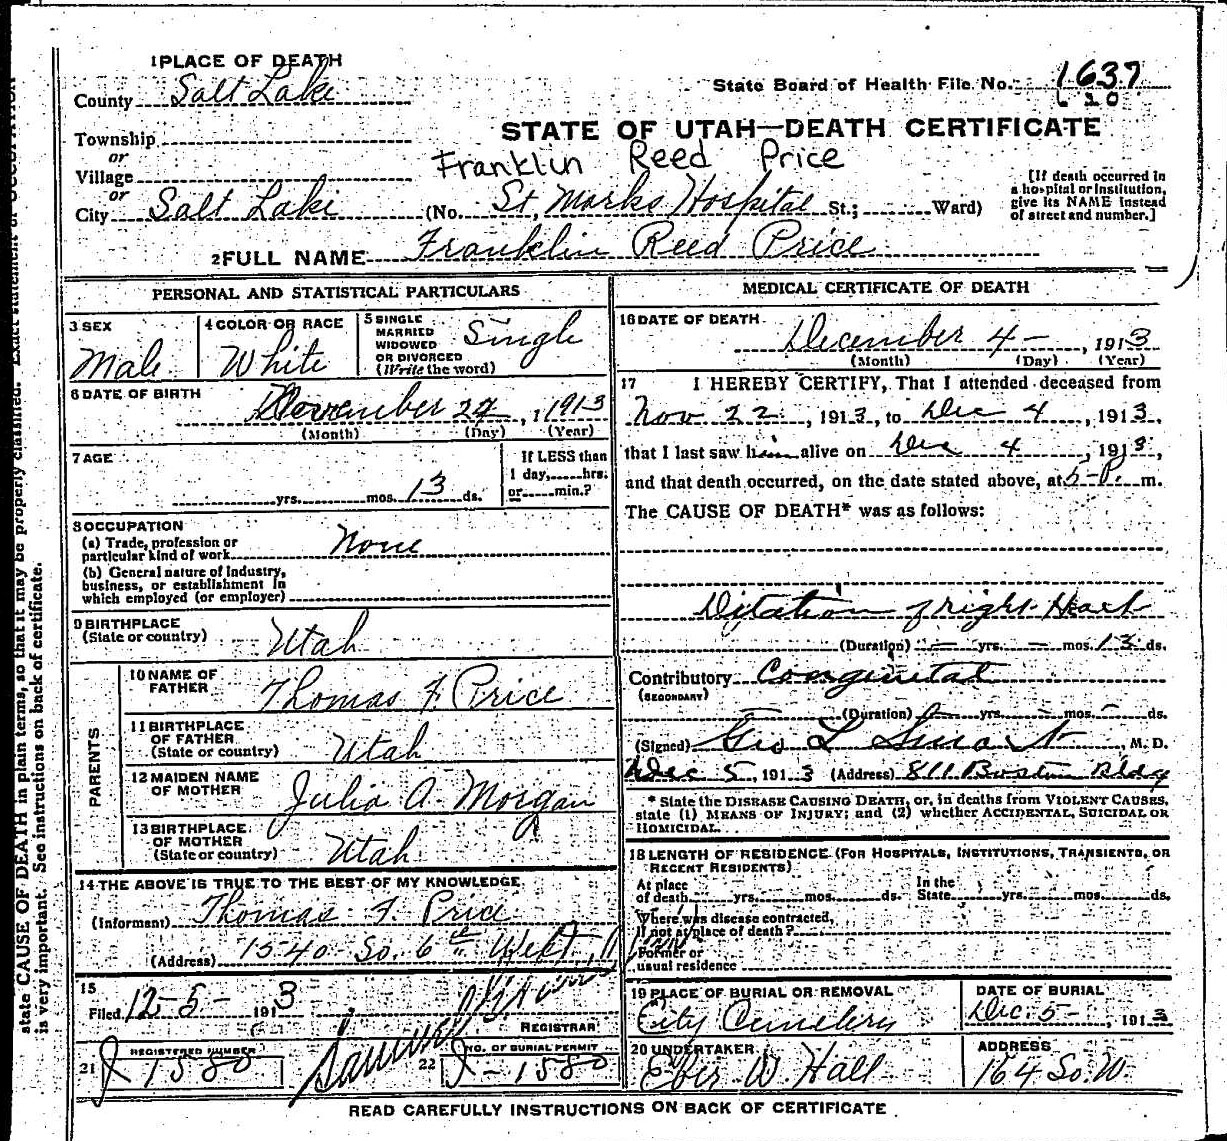 1 PLACE OF DEATH
County Salt Lake
State Board of Health File No. 1637
620
Township
or
Village
or
STATE OF UTAH—DEATH CERTIFICATE
Franklin Reed Price
City Salt Lake (No. St, Marks Hospital St.; Ward)
[If death occurred in
a hospital or institution,
give its NAME instead
of street and number.]
2 FULL NAME Franklin Reed Price
PERSONAL AND STATISTICAL PARTICULARS
3 SEX
Male
4 COLOR OR RACE
White
5 SINGLE
MARRIED
WIDOWED
OR DIVORCED
(Write the word)
Single
6 DATE OF BIRTH
November 22, 1913
(Month) (Day) (Year)
7 AGE
yrs. mos. 13 ds.
If LESS than
1 day, hrs.
or min.?
8 OCCUPATION
(a) Trade, profession or
particular kind of work None
(b) General nature of industry,
business, or establishment in
which employed (or employer)
9 BIRTHPLACE
(State or country) Utah
PARENTS
10 NAME OF
FATHER Thomas F. Price
11 BIRTHPLACE
OF FATHER
(State or country) Utah
12 MAIDEN NAME
OF MOTHER Julia A. Morgan
13 BIRTHPLACE
OF MOTHER
(State or country) Utah
14 THE ABOVE IS TRUE TO THE BEST OF MY KNOWLEDGE
(Informant) Thomas F. Price
(Address) 1540 So. 6th West
15
Filed 12-5- 1913
REGISTRAR
21 REGISTERED NUMBER
J 1580
22 NO. OF BURIAL PERMIT
J-1580
MEDICAL CERTIFICATE OF DEATH
16 DATE OF DEATH
December 4-, 1913
(Month) (Day) (Year)
17 I HEREBY CERTIFY, That I attended deceased from
Nov 22, 1913, to Dec 4, 1913,
that I last saw him alive on Dec 4, 1913,
and that death occurred, on the date stated above, at 5-P. m.
The CAUSE OF DEATH* was as follows:
Dilation of right Heart
(Duration) — yrs. — mos. 13 ds.
Contributory Congenital
(SECONDARY)
(Duration) — yrs. — mos. — ds.
(Signed) Geo L Smart, M. D.
Dec 5, 1913 (Address) 811 Boston Bldg
* State the DISEASE CAUSING DEATH, or, in deaths from VIOLENT CAUSES,
state (1) MEANS OF INJURY; and (2) whether ACCIDENTAL, SUICIDAL OR
HOMICIDAL.
18 LENGTH OF RESIDENCE (FOR HOSPITALS, INSTITUTIONS, TRANSIENTS, OR
RECENT RESIDENTS)
At place
of death yrs. mos. ds. In the
State yrs. mos. ds.
Where was disease contracted,
if not at place of death?
Former or
usual residence
19 PLACE OF BURIAL OR REMOVAL
City Cemetery
DATE OF BURIAL
Dec. 5-, 1913
20 UNDERTAKER
Eber W. Hall
ADDRESS
164 So. W.
READ CAREFULLY INSTRUCTIONS ON BACK OF CERTIFICATE
state CAUSE OF DEATH in plain terms, so that it may be properly classified. Exact statement of OCCUPATION
is very important. See instructions on back of certificate.